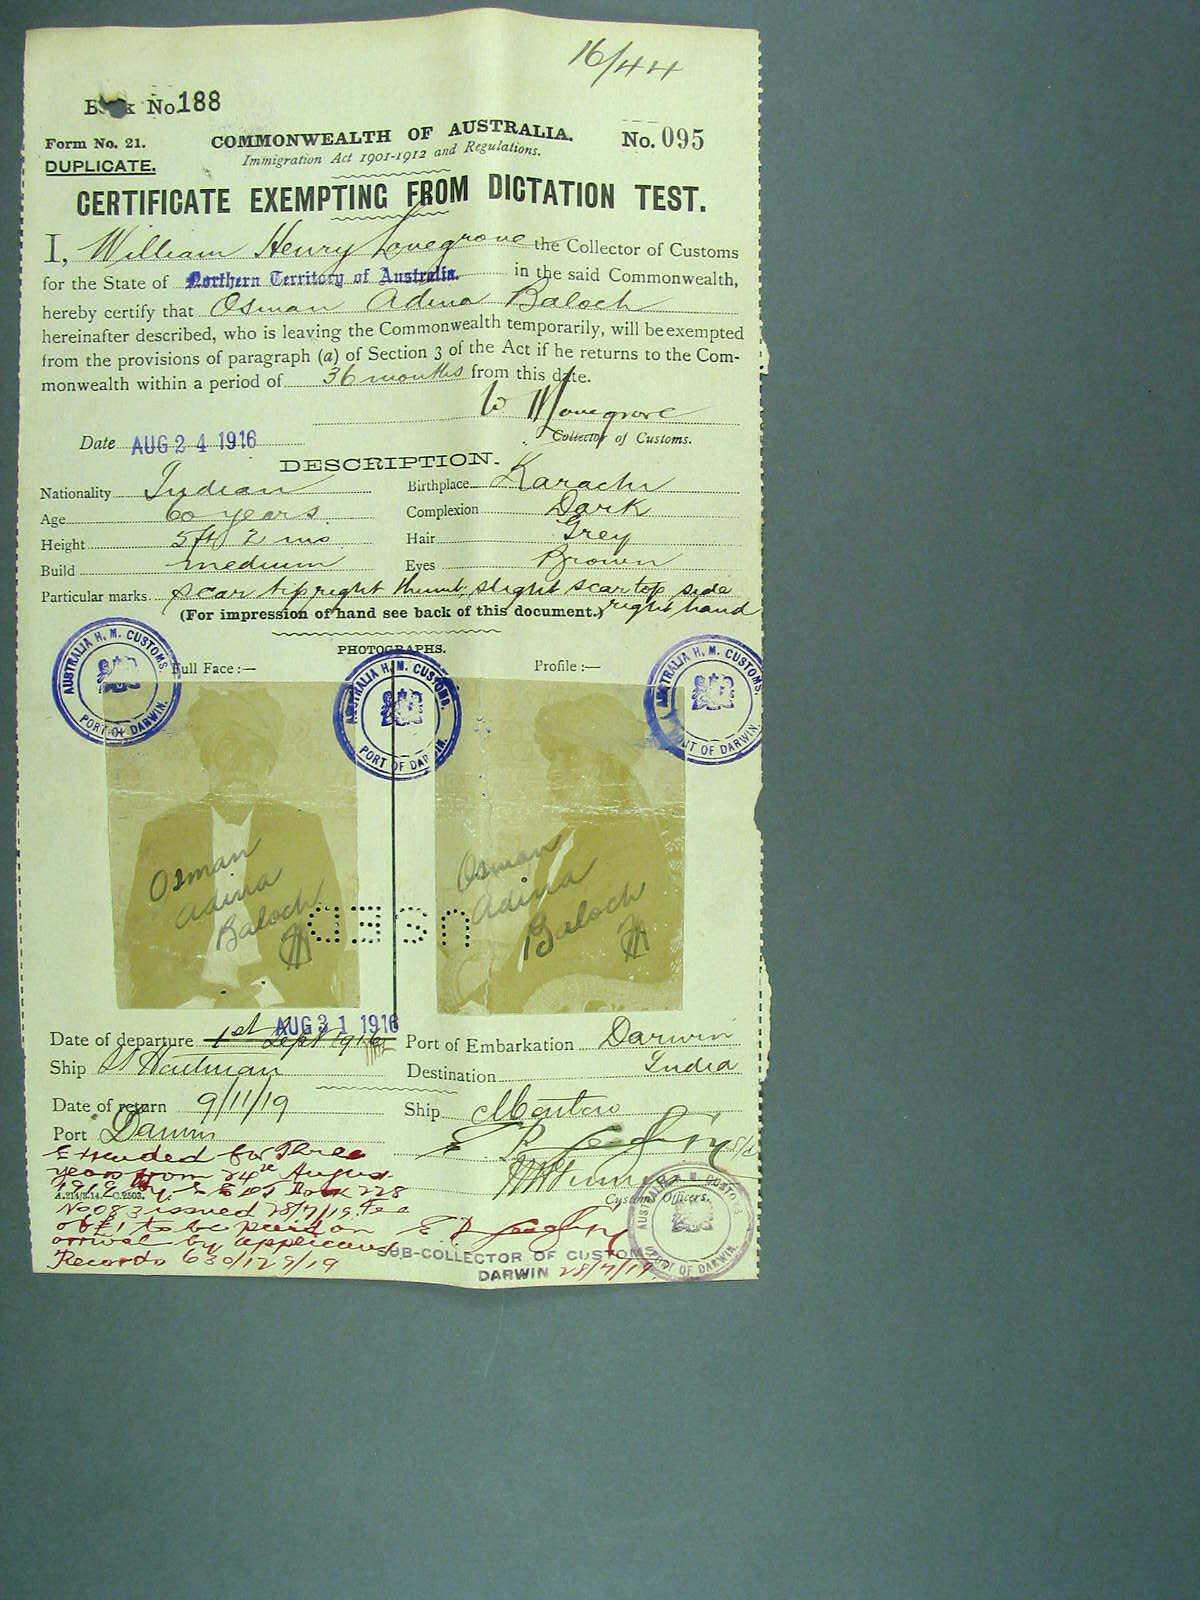 16/44
Book No. 188
Form No. 21.
COMMONWEALTH OF AUSTRALIA.
No. 095
DUPLICATE.
Immigration Act 1901-1912 and Regulations.
CERTIFICATE EXEMPTING FROM DICTATION TEST.
I, William Henry Lovegrove the Collector of Customs
for the State of Northern Territory of Australia. in the said Commonwealth,
hereby certify that Osman Adina Baloch
hereinafter described, who is leaving the Commonwealth temporarily, will be exempted
from the provisions of paragraph (a) of Section 3 of the Act if he returns to the Com-
monwealth within a period of 36 months from this date.
W H Lovegrove
Date AUG 24 1916
Collector of Customs.
DESCRIPTION.
Nationality Indian Birthplace Karachi
Age 60 years. Complexion Dark
Height 5ft 2 ins Hair Grey
Build medium Eyes Brown
Particular marks. scar tip right thumb, slight scar top side
right hand
(For impression of hand see back of this document.)
PHOTOGRAPHS.
Full Face :— Profile :—
AUSTRALIA H. M. CUSTOMS. PORT OF DARWIN.
AUSTRALIA H. M. CUSTOMS. PORT OF DARWIN.
AUSTRALIA H. M. CUSTOMS. PORT OF DARWIN.
Osman
Adina
Baloch
Osman
Adina
Baloch
USED
AUG 31 1916
Date of departure 1st Sept 1916 Port of Embarkation Darwin
Ship Destination India
Date of return 9/11/19 Ship Montoro
Port Darwin
Extended for Three
years from 24th August
1919 by C E D T Book 228
A.214/3.14.—C.2503.
Customs Officers.
No 083 issued 28/7/19. Fee
of £1 to be paid on
arrival by applicant
Records 630/129/19
SUB-COLLECTOR OF CUSTOMS
DARWIN 28/7/19
AUSTRALIA H. M. CUSTOMS. PORT OF DARWIN.